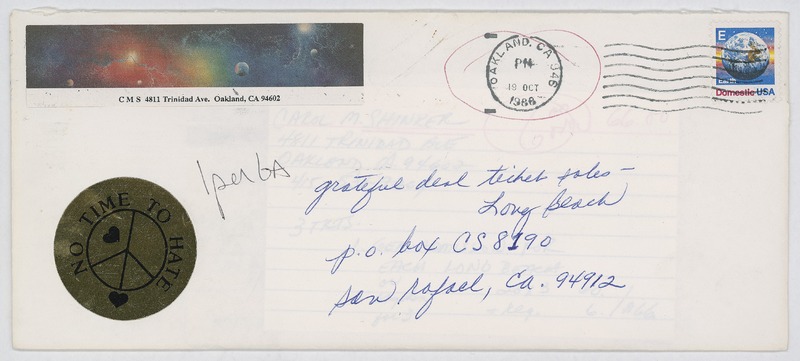 CMS 4811 Trinidad Ave. Oakland, CA 94602
OAKLAND, CA 946
PM
19 OCT
1988
E
Earth
Domestic USA
CAROL M. SHINKER
4811 TRINIDAD AVE
OAKLAND, CA 94602
1 per 6A
grateful dead ticket sales -
Long Beach
p.o. box CS 8190
san rafael, CA. 94912
NO TIME TO HATE